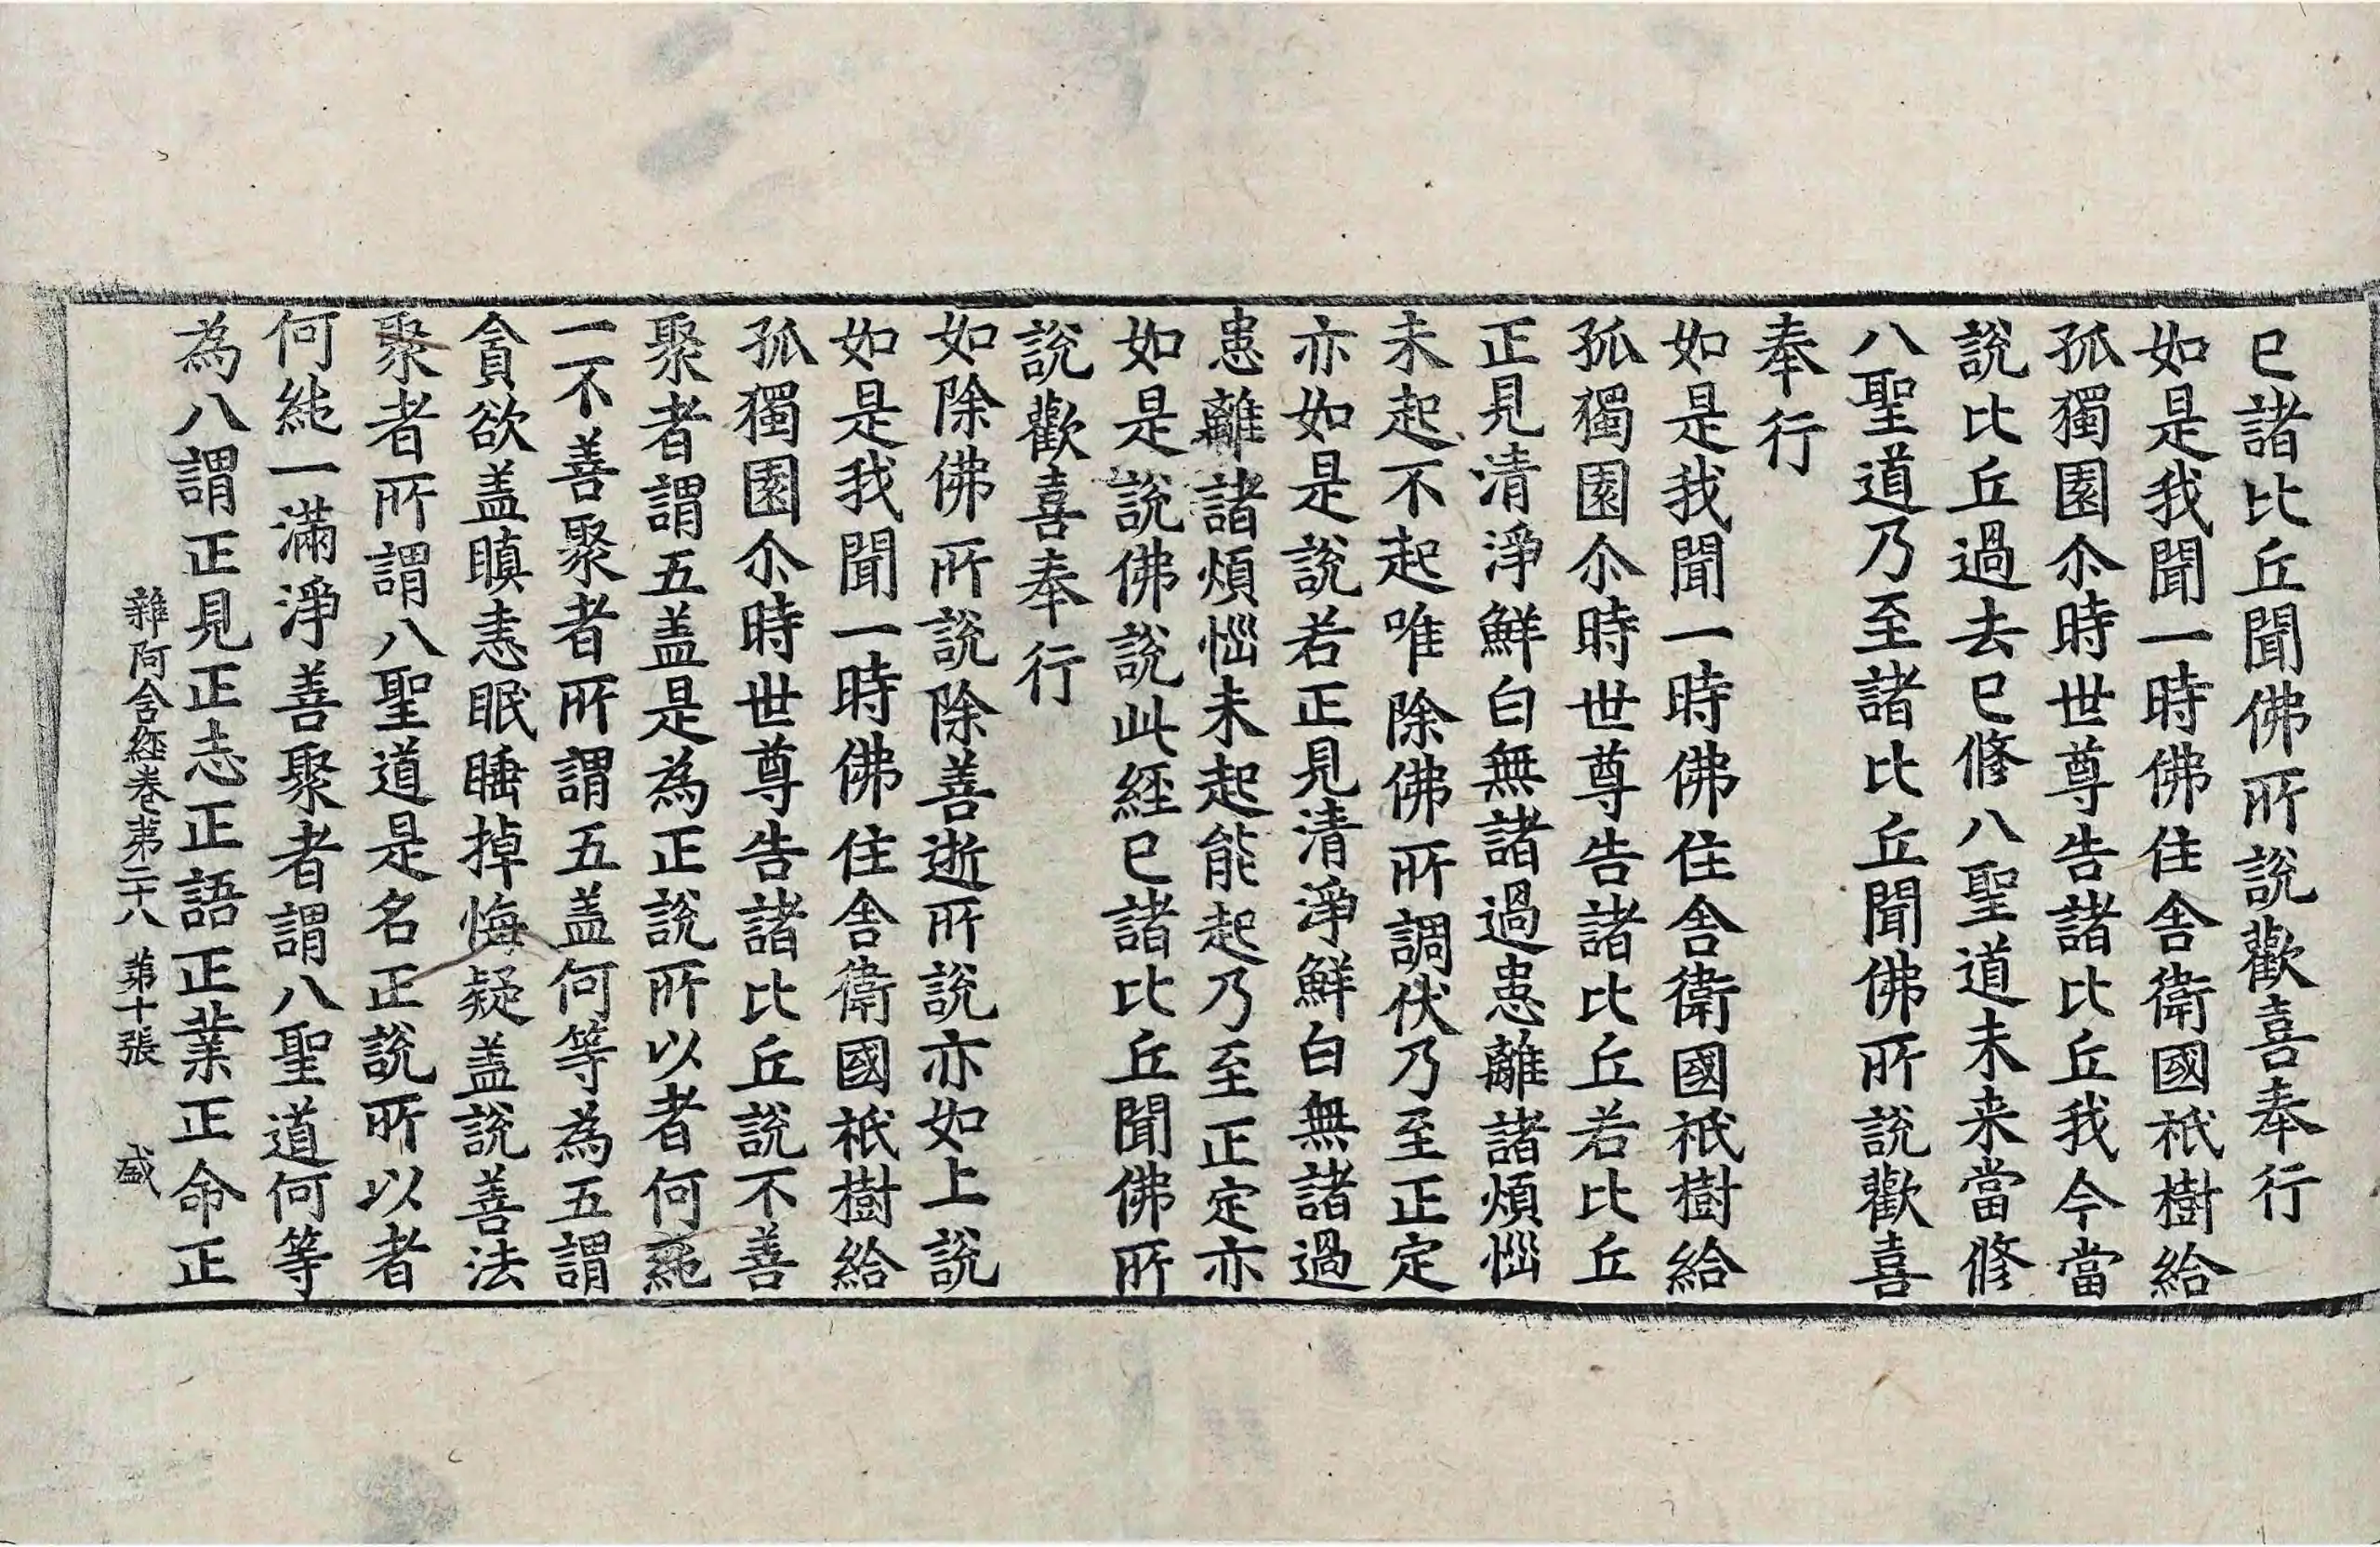 已諸比丘聞佛所說歡喜奉行
如是我聞一時佛住舍衛國祇樹給
孤獨園尒時世尊告諸比丘我今當
說比丘過去已修八聖道未来當修
八聖道乃至諸比丘聞佛所說歡喜
奉行
如是我聞一時佛住舍衛國祇樹給
孤獨園尒時世尊告諸比丘若比丘
正見清淨鮮白無諸過患離諸煩惱
未起不起唯除佛所調伏乃至正定
亦如是說若正見清淨鮮白無諸過
患離諸煩惱未起能起乃至正定亦
如是說佛說此経已諸比丘聞佛所
說歡喜奉行
如除佛所說除善逝所說亦如上說
如是我聞一時佛住舍衛國祇樹給
孤獨園尒時世尊告諸比丘說不善
聚者謂五盖是為正說所以者何純
一不善聚者所謂五盖何等為五謂
貪欲盖瞋恚眠睡掉悔疑盖說善法
聚者所謂八聖道是名正說所以者
何純一滿淨善聚者謂八聖道何等
為八謂正見正志正語正業正命正
雜阿含経卷第二十八 第十張 盛